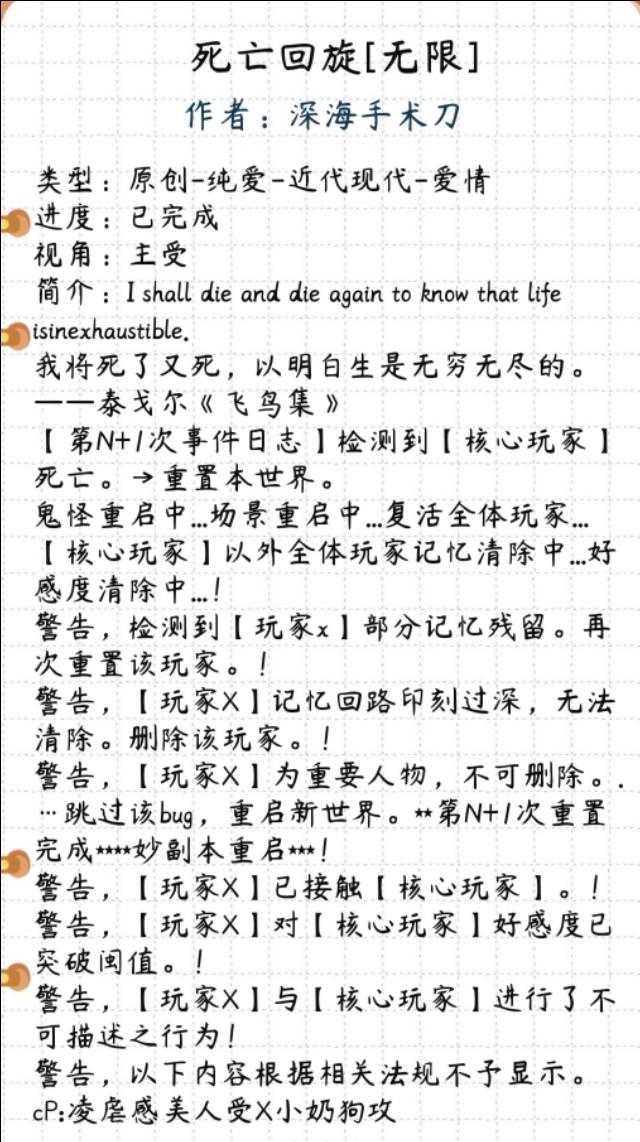 死亡回旋[无限]
作者：深海手术刀
类型：原创-纯爱-近代现代-爱情
进度：已完成
视角：主受
简介：I shall die and die again to know that life
isinexhaustible.
我将死了又死，以明白生是无穷无尽的。
——泰戈尔《飞鸟集》
【第N+1次事件日志】检测到【核心玩家】
死亡。→重置本世界。
鬼怪重启中…场景重启中…复活全体玩家…
【核心玩家】以外全体玩家记忆清除中…好
感度清除中…！
警告，检测到【玩家x】部分记忆残留。再
次重置该玩家。！
警告，【玩家X】记忆回路印刻过深，无法
清除。删除该玩家。！
警告，【玩家X】为重要人物，不可删除。.
…跳过该bug，重启新世界。**第N+1次重置
完成****妙副本重启***！
警告，【玩家X】已接触【核心玩家】。！
警告，【玩家X】对【核心玩家】好感度已
突破闽值。！
警告，【玩家X】与【核心玩家】进行了不
可描述之行为！
警告，以下内容根据相关法规不予显示。
cP:凌虐感美人受X小奶狗攻